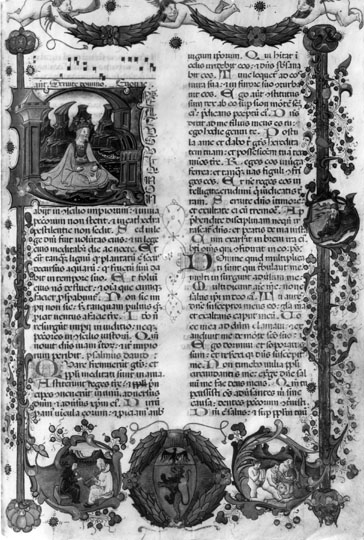 añ Seruite domino. Euouae
abijt in cõsilio impiorum: & in uia
peccatorum non stetit: & in cathedra
pestilentie non sedit. Sed in le
ge dñi fuit uoluntas eius: & in lege
eius meditabit die ac nocte. Et
erit tanq̃ lignũ qđ plantatũ ẽ secus
decursus aquarũ: qđ fructũ suũ da
bit in tempore suo. Et foliũ
eius nõ defluet: & oĩa quecunq;
faciet psperabunt. Non sic im
pij non sic: sed tanquam puluis quẽ
proicit uentus a facie terre. Ideo nõ
resurgũt impij in iuditio: neq;
peccatores in cõsilio iustorũ. Qm̃
nouit dñs uiam iustorũ: & iter impi
orum peribit. psalmus dauid
Quare fremuerunt gẽtes: et
ppli meditati sunt inania
Astiterunt reges terre: & prĩ
cipes conuenerunt in unum: aduersus
dominũ & aduersus xpm eius. Dirũ
pam? uincula eorum: & proiciam? a nob
iugum ipsorum. Qui hitat ĩ
celis irridebit eos: & dñs subsãna
bit eos. Tunc loquet? ad eos
in ira sua: & in furore suo cõturba
bit eos. Ego aũt cõstitutus
sum rex ab eo sup sion mõtẽ sctm
ei?: predicans preceptũ ei?. Dñs
dixit ad me filius meus es tu:
ego hodie genui te. Postu
la a me et dabo t gẽtes heredita
tem tuam: et possessionẽ tuã ter
minos tr̃e. Reges eos in uirga
ferrea: et tanq̃ uas figuli cõfrĩ
ges eos. Et nũc reges in
telligite: erudimini qui iudicatis
terrã. Seruite dño in timore:
et exultate ei cũ tremore. Ap
prehendite disciplinam nequãdo ir
ascat? dñs: et pereatis de uia iusta
Cum exarserit in breui ira ei?:
beati oẽs qui confidunt in eo. ps
Domine quid multiplica
ti sunt qui tribulant me:
multi insurgunt aduersum me.
Multi dicunt aĩe mee: non ẽ
salus ipi in deo ei?. Tu autẽ
dñe susceptor meus es: gla mea
et exaltans caput meũ. Uo
ce mea ad dñm clamaui: & ex
audiuit me de mõte scto suo.
Ego dormiui et soporatus
sum: et resurrexi qa dñs suscepit
me. Non timebo milia ppli
circundantis me: exurge dñe sal
uũ me fac deus meus. Qm̃ tu
percussisti oẽs aduersantes m sine
causa: dentes peccatorũ cõtriuisti.
Domini ẽ salus: & sup pplm tuũ